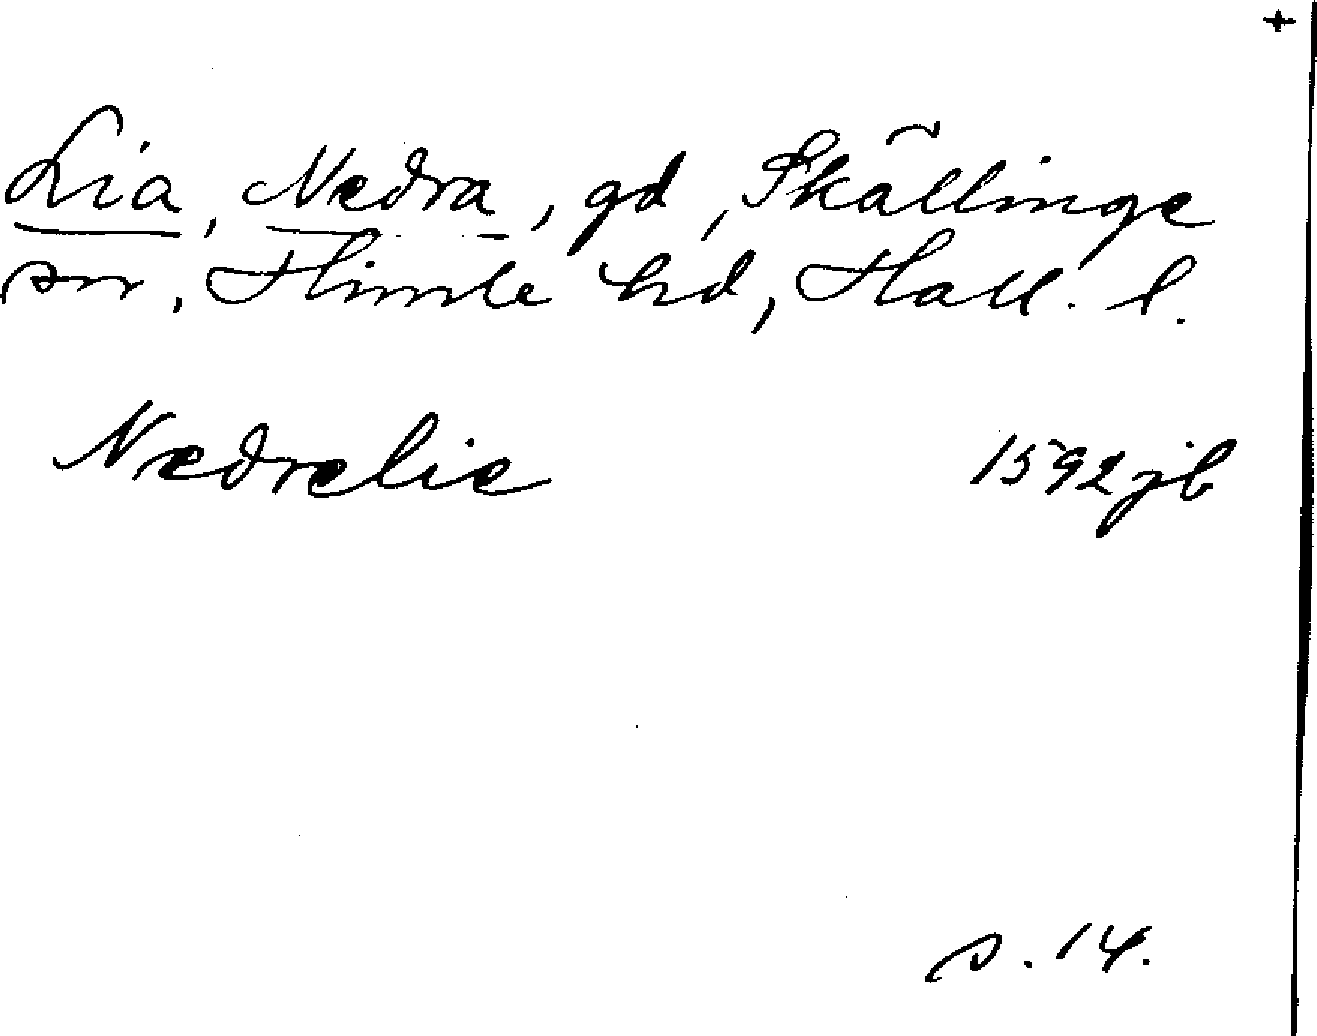 +
Lia, Nedra, gd, Skällinge
sn, Himle hd, Hall. l.
Nedrelie 1592 jb
s. 14.